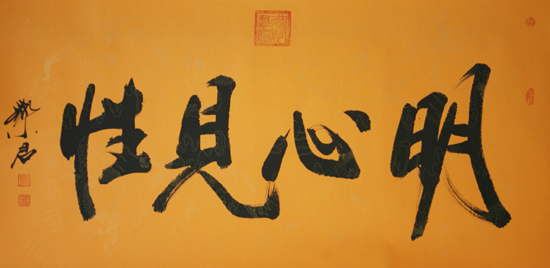 明心見性